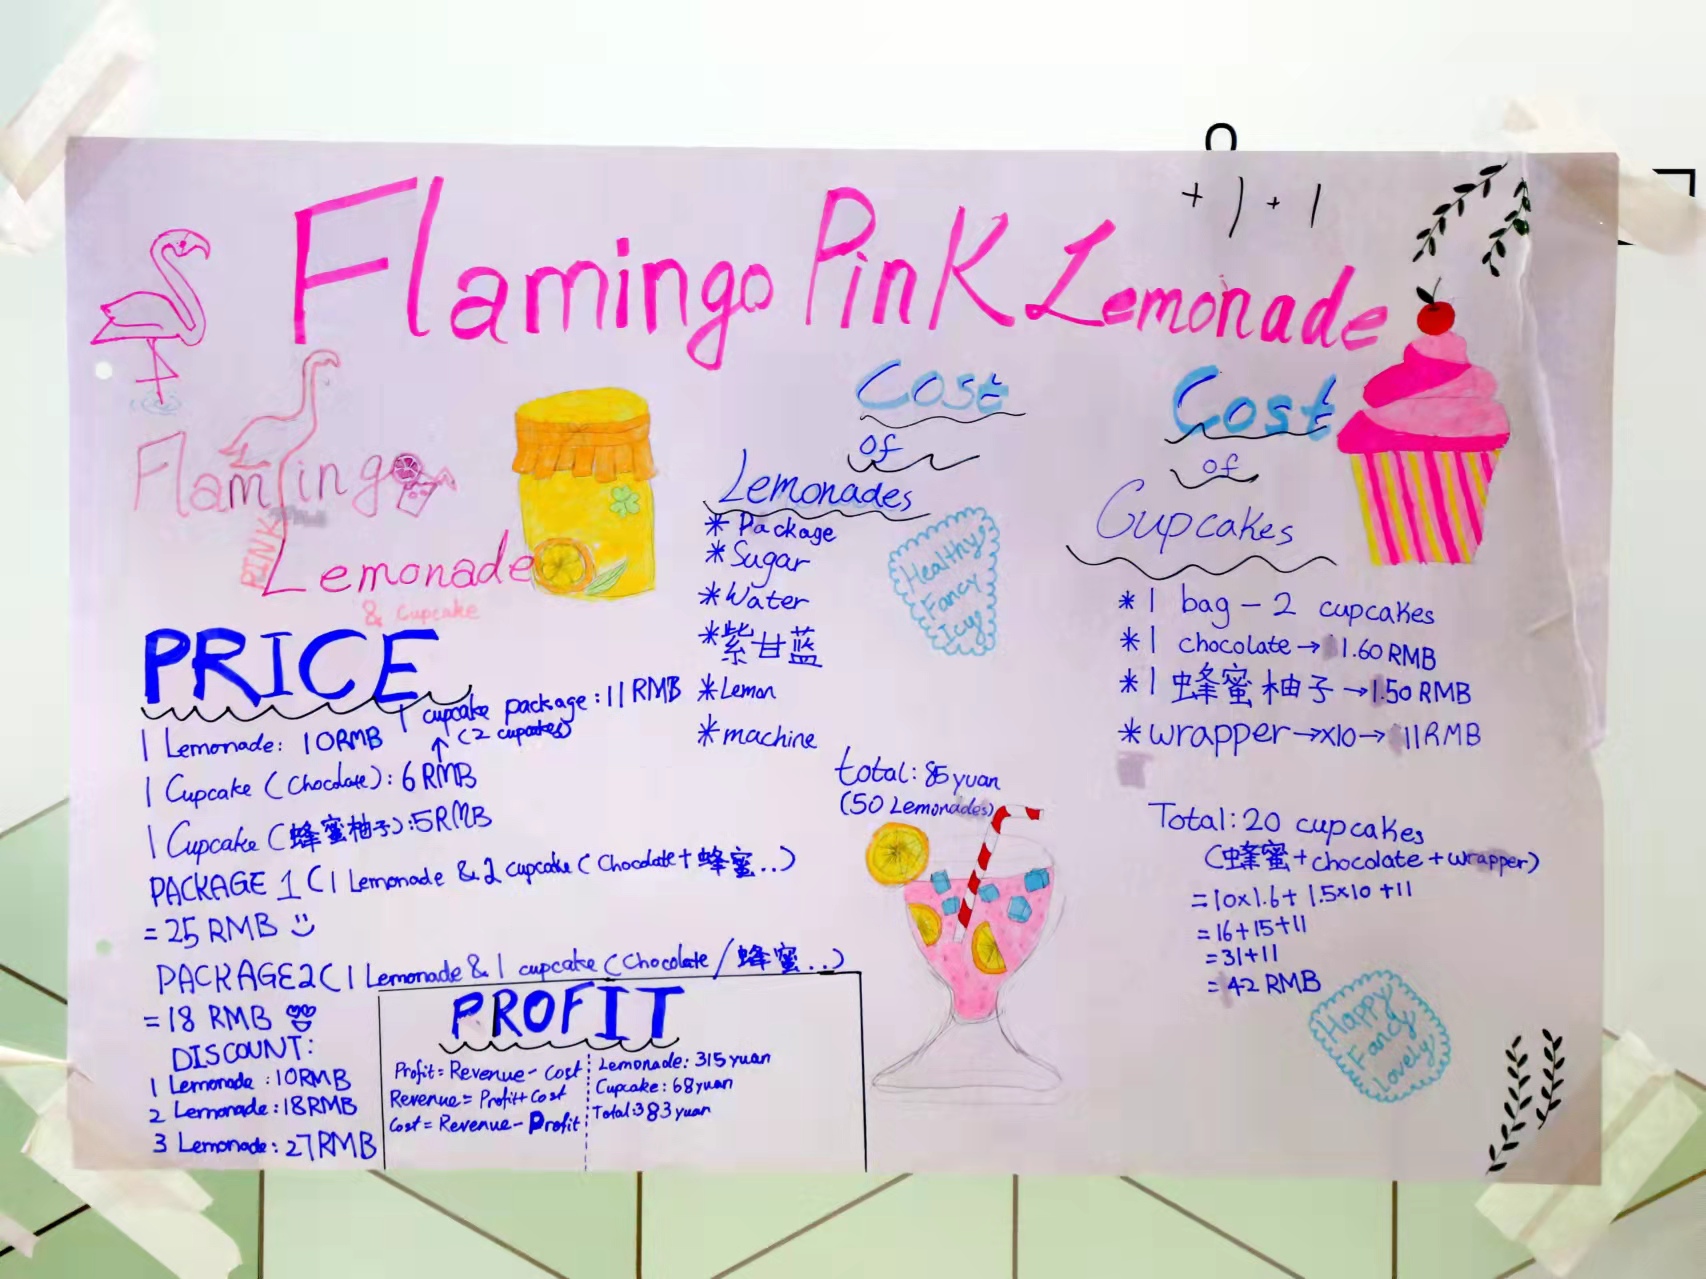 + 1 + 1
Flamingo Pink Lemonade
Flamingo
PINK
Lemonade
& Cupcake
PRICE
1 cupcake package: 11 RMB
(2 cupcakes)
1 Lemonade: 10RMB
1 Cupcake (Chocolate): 6 RMB
1 Cupcake (蜂蜜柚子):5RMB
PACKAGE 1 (1 Lemonade & 2 cupcake (Chocolate+蜂蜜..)
= 25 RMB
PACKAGE2 (1 Lemonade & 1 cupcake (Chocolate/蜂蜜..)
=18 RMB
DISCOUNT:
1 Lemonade :10RMB
2 Lemonade:18RMB
3 Lemonade: 27RMB
PROFIT
Profit=Revenue-Cost
Revenue=Profit+Cost
Cost=Revenue-Profit
Lemonade: 315yuan
Cupcake: 68yuan
Total:383yuan
Cost
of
Lemonades
* Package
* Sugar
* Water
* 紫甘蓝
* Lemon
* machine
Healthy
Fancy
Icy
total: 85yuan
(50 Lemonades)
Cost
of
Cupcakes
* 1 bag - 2 cupcakes
* 1 chocolate→ 1.60 RMB
* 1 蜂蜜柚子→1.50 RMB
* wrapper→x10→ 11RMB
Total: 20 cupcakes
(蜂蜜+chocolate+wrapper)
=10x1.6+1.5x10+11
=16+15+11
=31+11
=42 RMB
Happy
Fancy
Lovely